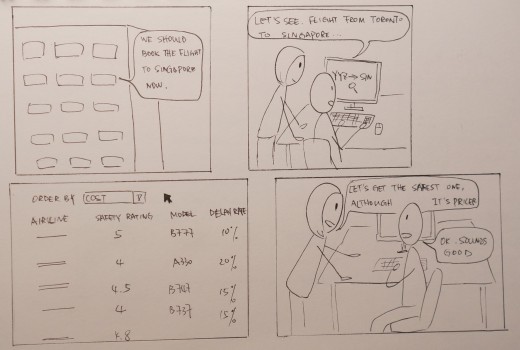 WE SHOULD
BOOK THE FLIGHT
TO SINGAPORE
NOW.
LET'S SEE. FLIGHT FROM TORONTO
TO SINGAPORE...
YYZ → SIN
ORDER BY COST
AIRLINE SAFETY RATING MODEL DELAY RATE
5 B777 10%
4 A330 20%
4.5 B747 15%
4 B737 15%
4.8
LET'S GET THE SAFEST ONE,
ALTHOUGH IT'S PRICER
OK. SOUNDS
GOOD